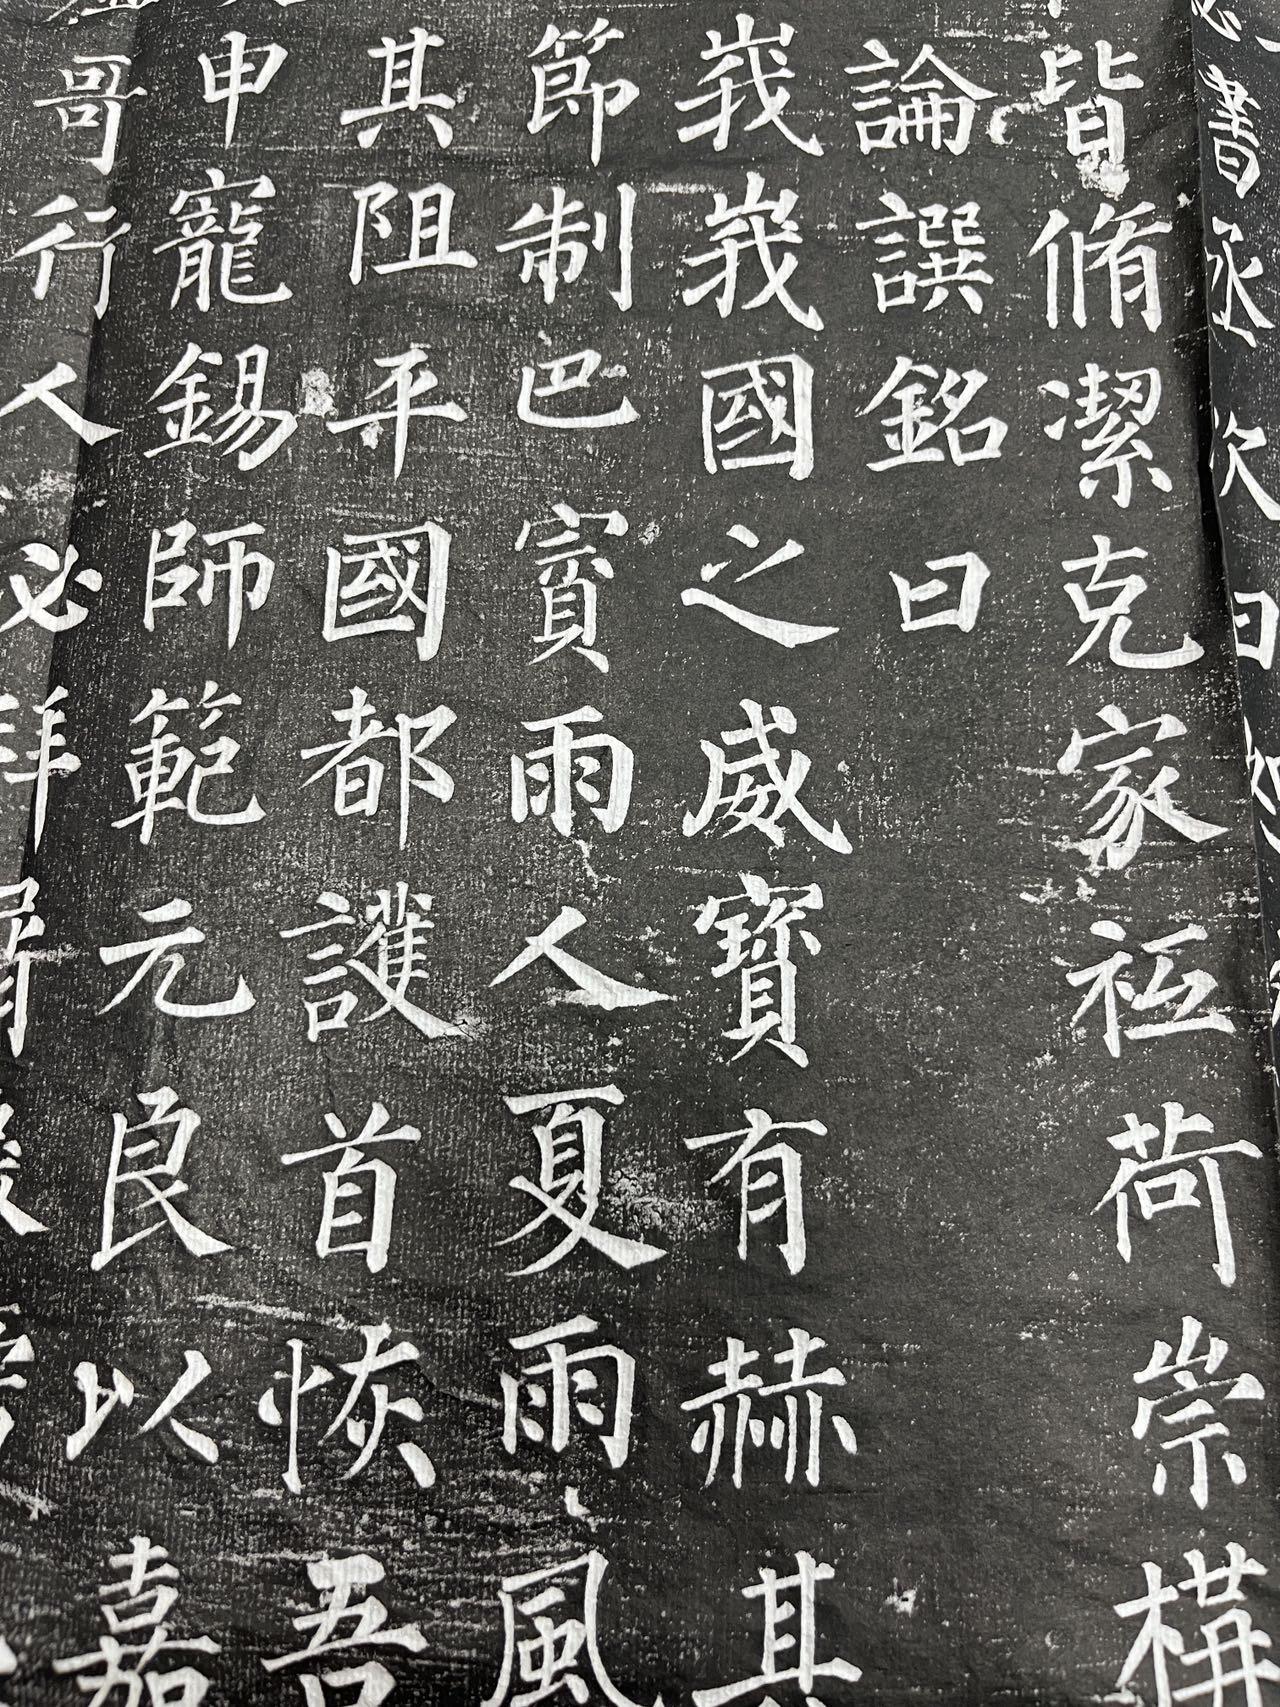 書丞次曰
皆脩潔克家祗荷崇構
論譔銘曰
峩峩國之威寶有赫其
節制巴賨雨人夏雨風
其阻平國都護首恢吾
申寵錫師範元良以嘉
哥行人必